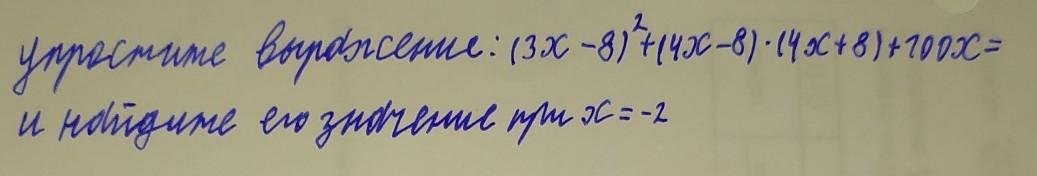 упростите выражение: (3x-8)²+(4x-8)·(4x+8)+100x=
и найдите его значение при x=-2